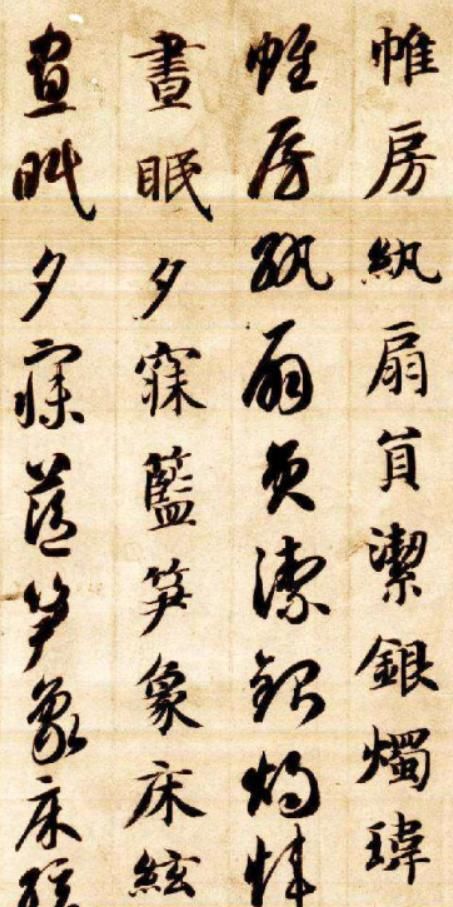 帷房紈扇員潔銀燭瑋
帷房紈扇員潔銀燭煒
晝眠夕寐藍笋象床絃
晝眠夕寐藍笋象床